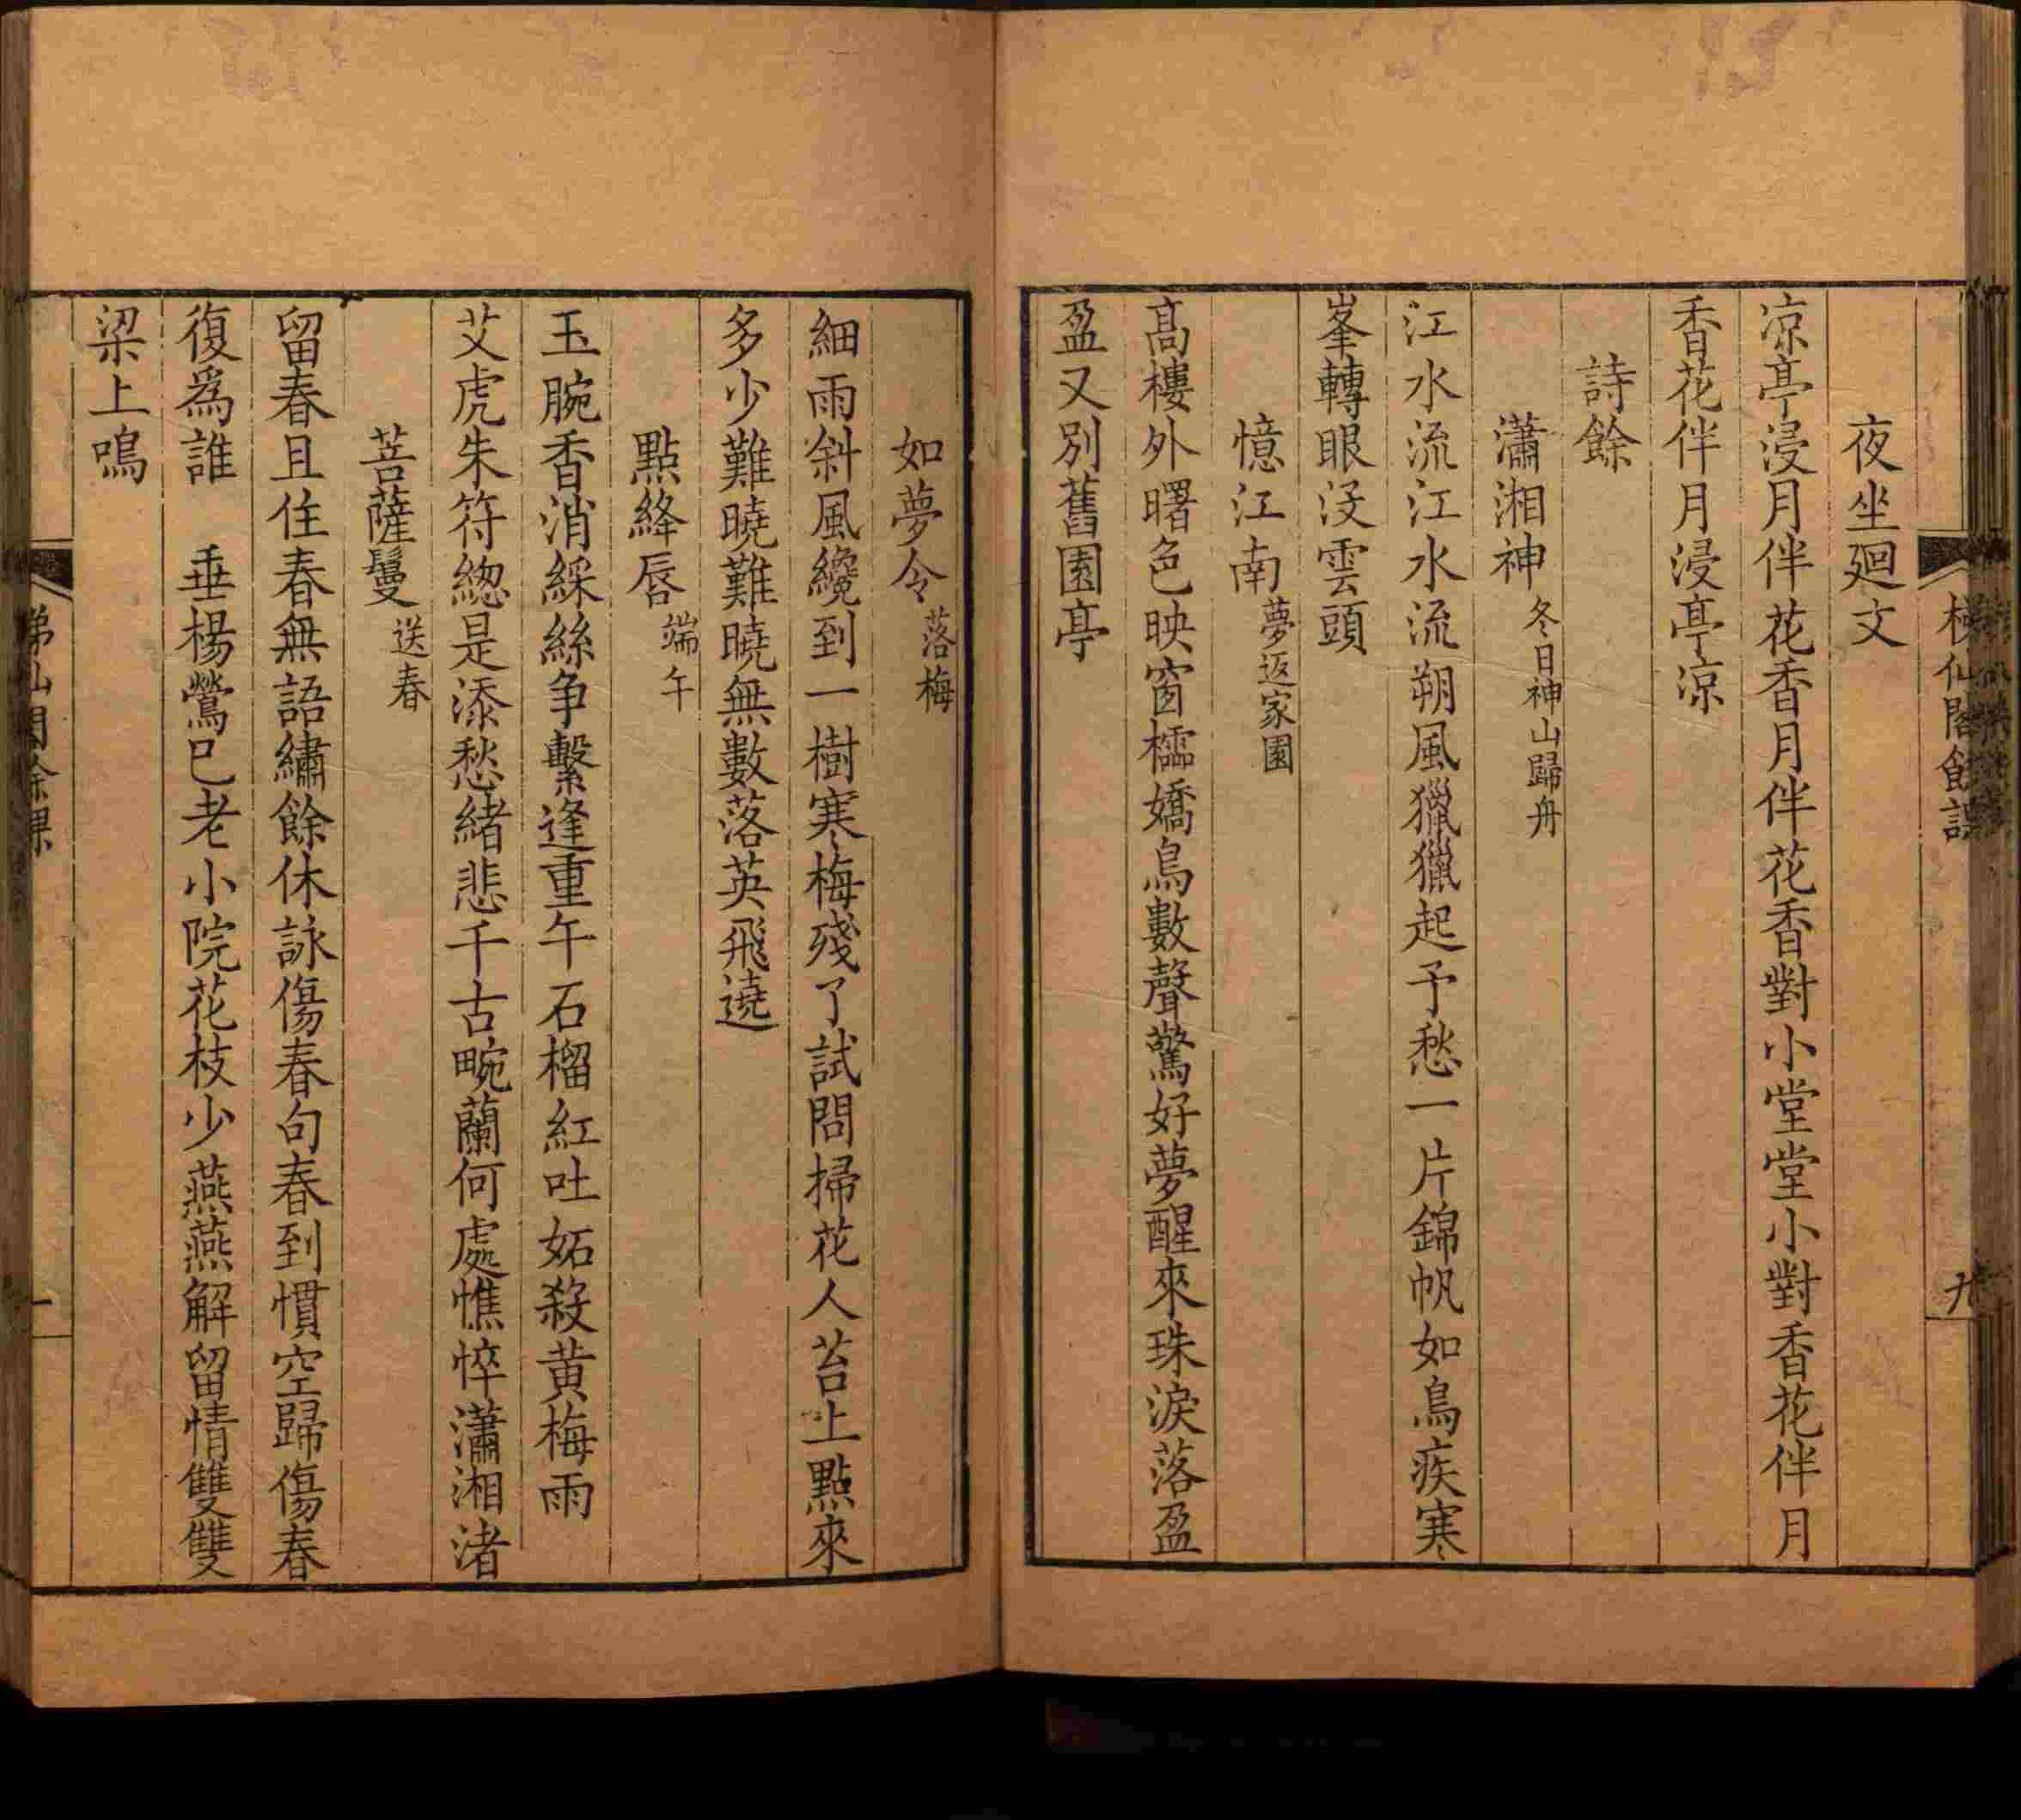 梯仙閣餘課 九
夜坐廻文
凉亭浸月伴花香月伴花香對小堂堂小對香花伴月
香花伴月浸亭凉
詩餘
瀟湘神 冬日神山歸舟
江水流江水流朔風獵獵起予愁一片錦帆如鳥疾寒
峯轉眼沒雲頭
憶江南 夢返家園
高樓外曙色映窗櫺嬌鳥數聲驚好夢醒來珠淚落盈
盈又別舊園亭
如夢令 落梅
細雨斜風纔到一樹寒梅殘了試問掃花人苔上點來
多少難曉難曉無數落英飛遶
點絳唇 端午
玉腕香消綵絲争繫逢重午石榴紅吐妬殺黄梅雨
艾虎朱符總是添愁緒悲千古畹蘭何處憔悴瀟湘渚
菩薩鬘 送春
留春且住春無語繡餘休詠傷春句春到慣空歸傷春
復爲誰　垂楊鶯已老小院花枝少燕燕解留情雙雙
梁上鳴